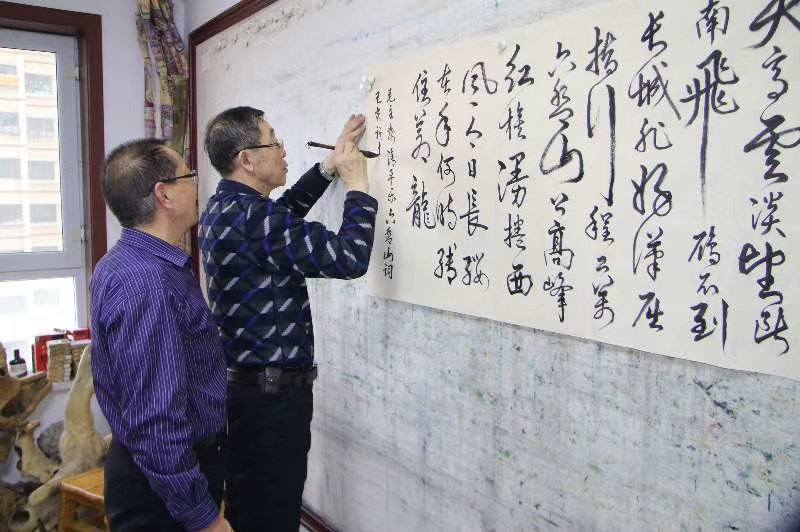 天高雲淡望断
南飛雁不到
长城非好漢屈
指行程二萬
六盘山上高峰
红旗漫捲西
风今日長缨
在手何時缚
住蒼龍
毛主席清平乐六盘山詞